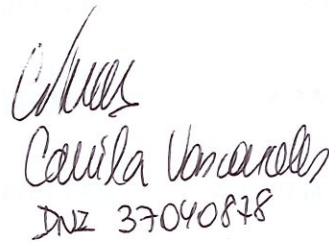 Camila Vasconcelos
DNZ 37040878